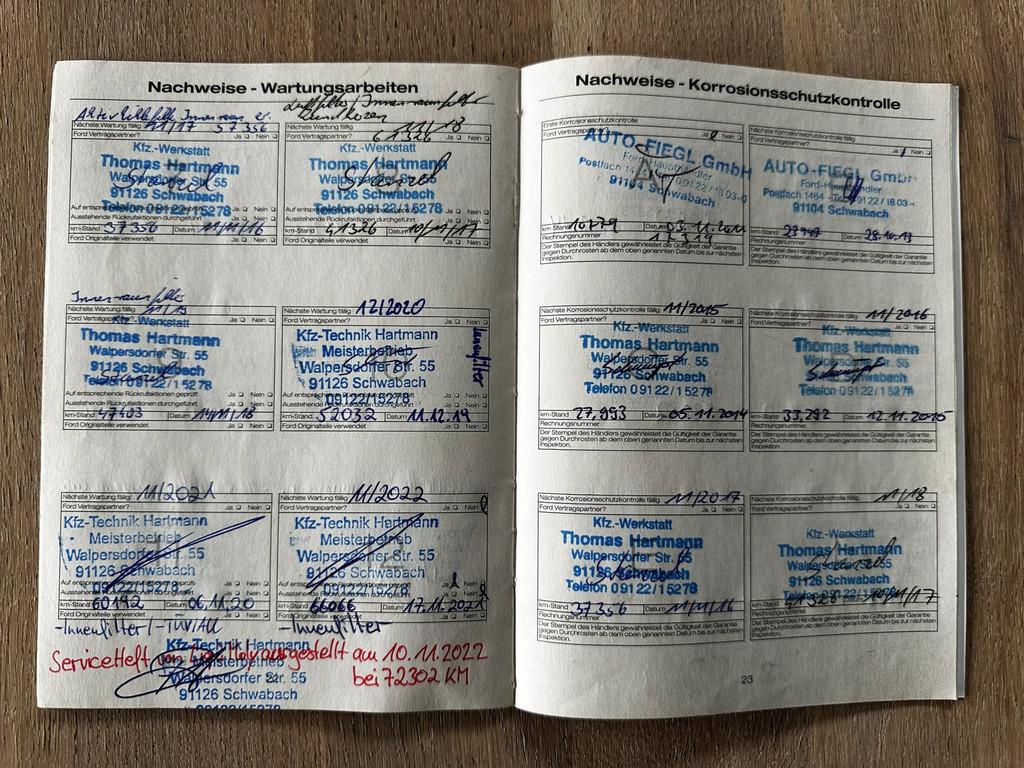 Nachweise - Wartungsarbeiten
Nächste Wartung fällig 11/17 57356
Ford Vertragspartner? Ja Nein
Kfz.-Werkstatt
Thomas Hartmann
Walpersdorfer Str. 55
91126 Schwabach
Telefon 09122/15278
Ausstehende Rückrufaktionen durchgeführt
km-Stand 37356 Datum 11/11/16
Ford Originalteile verwendet
Luftfilter/Innenraumfilter
Nächste Wartung fällig 11/18
Ford Vertragspartner? 61326 Ja Nein
Kfz.-Werkstatt
Thomas Hartmann
Walpersdorfer Str. 55
91126 Schwabach
Telefon 09122/15278
Ausstehende Rückrufaktionen durchgeführt
km-Stand 41326 Datum 10/11/17
Ford Originalteile verwendet
Innenraumfilter
Nächste Wartung fällig 11/19
Ford Vertragspartner? Ja Nein
Kfz.-Werkstatt
Thomas Hartmann
Walpersdorfer Str. 55
91126 Schwabach
Telefon 09122/15278
Ausstehende Rückrufaktionen durchgeführt
km-Stand 47403 Datum 14/11/18
Ford Originalteile verwendet
Nächste Wartung fällig 12/2020
Ford Vertragspartner? Ja Nein
Kfz-Technik Hartmann
Meisterbetrieb
Walpersdorfer Str. 55
91126 Schwabach
09122/15278
Innenfilter
km-Stand 52032 Datum 11.12.19
Ford Originalteile verwendet Ja Nein
Nächste Wartung fällig 11/2021
Ford Vertragspartner? Ja Nein
Kfz-Technik Hartmann
Meisterbetrieb
Walpersdorfer Str. 55
91126 Schwabach
09122/15278
km-Stand 60192 Datum 06.11.20
Ford Originalteile verwendet Ja Nein
-Innenfilter/-TÜV/AU
Nächste Wartung fällig 11/2022
Ford Vertragspartner? Ja Nein
Kfz-Technik Hartmann
Meisterbetrieb
Walpersdorfer Str. 55
91126 Schwabach
09122/15278
km-Stand 66066 Datum 17.11.2021
Ford Originalteile verwendet Ja Nein
-Innenfilter
Kfz-Technik Hartmann
ServiceHeft von ausgestellt am 10.11.2022
Meisterbetrieb
bei 72302 KM
Walpersdorfer Str. 55
91126 Schwabach
09122/15278
Nachweise - Korrosionsschutzkontrolle
Erste Korrosionsschutzkontrolle
Ford Vertragspartner? Ja Nein
AUTO-FIEGL GmbH
Ford-Haupthändler
Postfach 1464 09122/18 03-0
91104 Schwabach
km-Stand 10779 Datum 03.11.2011
Rechnungsnummer
Der Stempel des Händlers gewährleistet die Gültigkeit der Garantie
gegen Durchrosten ab dem oben genannten Datum bis zur nächsten
Inspektion.
Nächste Korrosionsschutzkontrolle fällig
Ford Vertragspartner? Ja Nein
AUTO-FIEGL GmbH
Ford-Haupthändler
Postfach 1464 09122/18 03-
91104 Schwabach
km-Stand Datum 28.10.13
Rechnungsnummer
Der Stempel des Händlers gewährleistet die Gültigkeit der Garantie
gegen Durchrosten ab dem oben genannten Datum bis zur nächsten
Inspektion.
Nächste Korrosionsschutzkontrolle fällig 11/2015
Ford Vertragspartner? Ja Nein
Kfz.-Werkstatt
Thomas Hartmann
Walpersdorfer Str. 55
91126 Schwabach
Telefon 09122/15278
km-Stand 27.993 Datum 05.11.2014
Rechnungsnummer
Der Stempel des Händlers gewährleistet die Gültigkeit der Garantie
gegen Durchrosten ab dem oben genannten Datum bis zur nächsten
Inspektion.
Nächste Korrosionsschutzkontrolle fällig 11/2016
Ford Vertragspartner? Ja Nein
Kfz.-Werkstatt
Thomas Hartmann
Walpersdorfer Str. 55
91126 Schwabach
Telefon 09122/15278
km-Stand 33,292 Datum 12.11.2015
Rechnungsnummer
Der Stempel des Händlers gewährleistet die Gültigkeit der Garantie
gegen Durchrosten ab dem oben genannten Datum bis zur nächsten
Inspektion.
Nächste Korrosionsschutzkontrolle fällig 11/2017
Ford Vertragspartner? Ja Nein
Kfz.-Werkstatt
Thomas Hartmann
Walpersdorfer Str. 55
91126 Schwabach
Telefon 09122/15278
km-Stand 37356 Datum 11/11/16
Rechnungsnummer
Der Stempel des Händlers gewährleistet die Gültigkeit der Garantie
gegen Durchrosten ab dem oben genannten Datum bis zur nächsten
Inspektion.
Nächste Korrosionsschutzkontrolle fällig 11/18
Ford Vertragspartner? Ja Nein
Kfz.-Werkstatt
Thomas Hartmann
Walpersdorfer Str. 55
91126 Schwabach
Telefon 09122/15278
km-Stand 41326 10/11/17
Rechnungsnummer
Der Stempel des Händlers gewährleistet die Gültigkeit der Garantie
gegen Durchrosten ab dem oben genannten Datum bis zur nächsten
Inspektion.
23